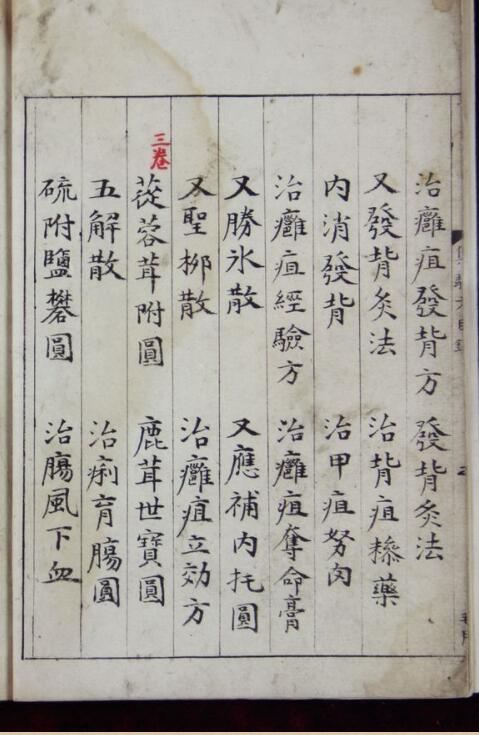 治癰疽發背方　發背灸法
又發背灸法　治背疽糝藥
内消發背　治甲疽努肉
治癰疽經驗方　治癰疽奪命膏
又勝氷散　又應補内托圓
又聖栁散　治癰疽立効方
三卷
蓯蓉茸附圓　鹿茸世寶圓
五解散　治痢育膓圓
硫附鹽礬圓　治膓風下血